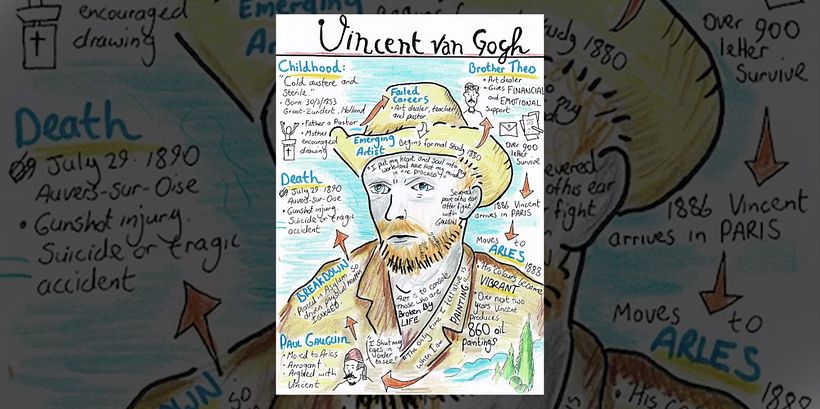 Vincent van Gogh
Childhood:
"Cold austere and
Sterile."
• Born 30/3/1853
Groot-Zundert, Holland
• Father a Pastor
• Mother
encouraged
drawing
Failed
Careers
• Art dealer, teacher
and pastor.
Emerging
Artist
Begins formal study 1880
Brother Theo
• Art dealer
• Gives FINANCIAL
and EMOTIONAL
Support
Over 900
letter
Survive
1886 Vincent
arrives in PARIS
Moves to
ARLES
1888
• His Colours became
VIBRANT
• Over next two
years Vincent
produces
860 oil
paintings
"I put my heart and soul into my
work and have lost my mind
in the process"
Severed
part of his ear
after fight
with
Gauguin
Death
July 29. 1890
Auvers-sur-Oise
• Gunshot injury
Suicide or tragic
accident
BREAKDOWN
Placed in Asylum
PAUL GAUGUIN
• Moved to Arles
• Arrogant
• Argued with
Vincent
"I Shut my
eyes in
order
to see"
Art is to console
those who are
Broken By
LIFE
"The only time I feel alive is
when I am
PAINTING"
encouraged
drawing
Emerging
Death
July 29. 1890
Auvers-sur-Oise
• Gunshot injury
Suicide or tragic
accident
study 1880
Over 900
letter
Survive
severed
of his ear
fight
1886 Vincent
arrives in PARIS
Moves to
ARLES
1888
• His